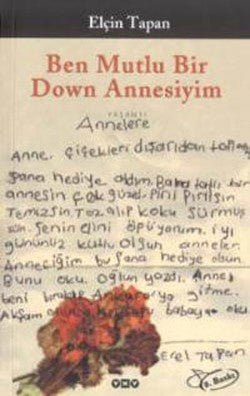 Elçin Tapan
Ben Mutlu Bir
Down Annesiyim
YAŞANTI
Annelere
Anne, çiçekleri dışarıdan topladım
sana hediye aldım. Bana tatlı bir
annesin çok güzel. Pırıl Pırılsın
Temizsin. Toz alıp koku sürmüş
sün. Senin elini öpüyorum. iyi
gününüz kutlu olsun anneler
Anneciğim bu sana hediye olsun.
Bunu oku. oğlun yazdı. Anne
beni bırakıp Ankara'ya gitme.
Akşam bunu babaya oku
Erel Tapan
YKY
9. Baskı